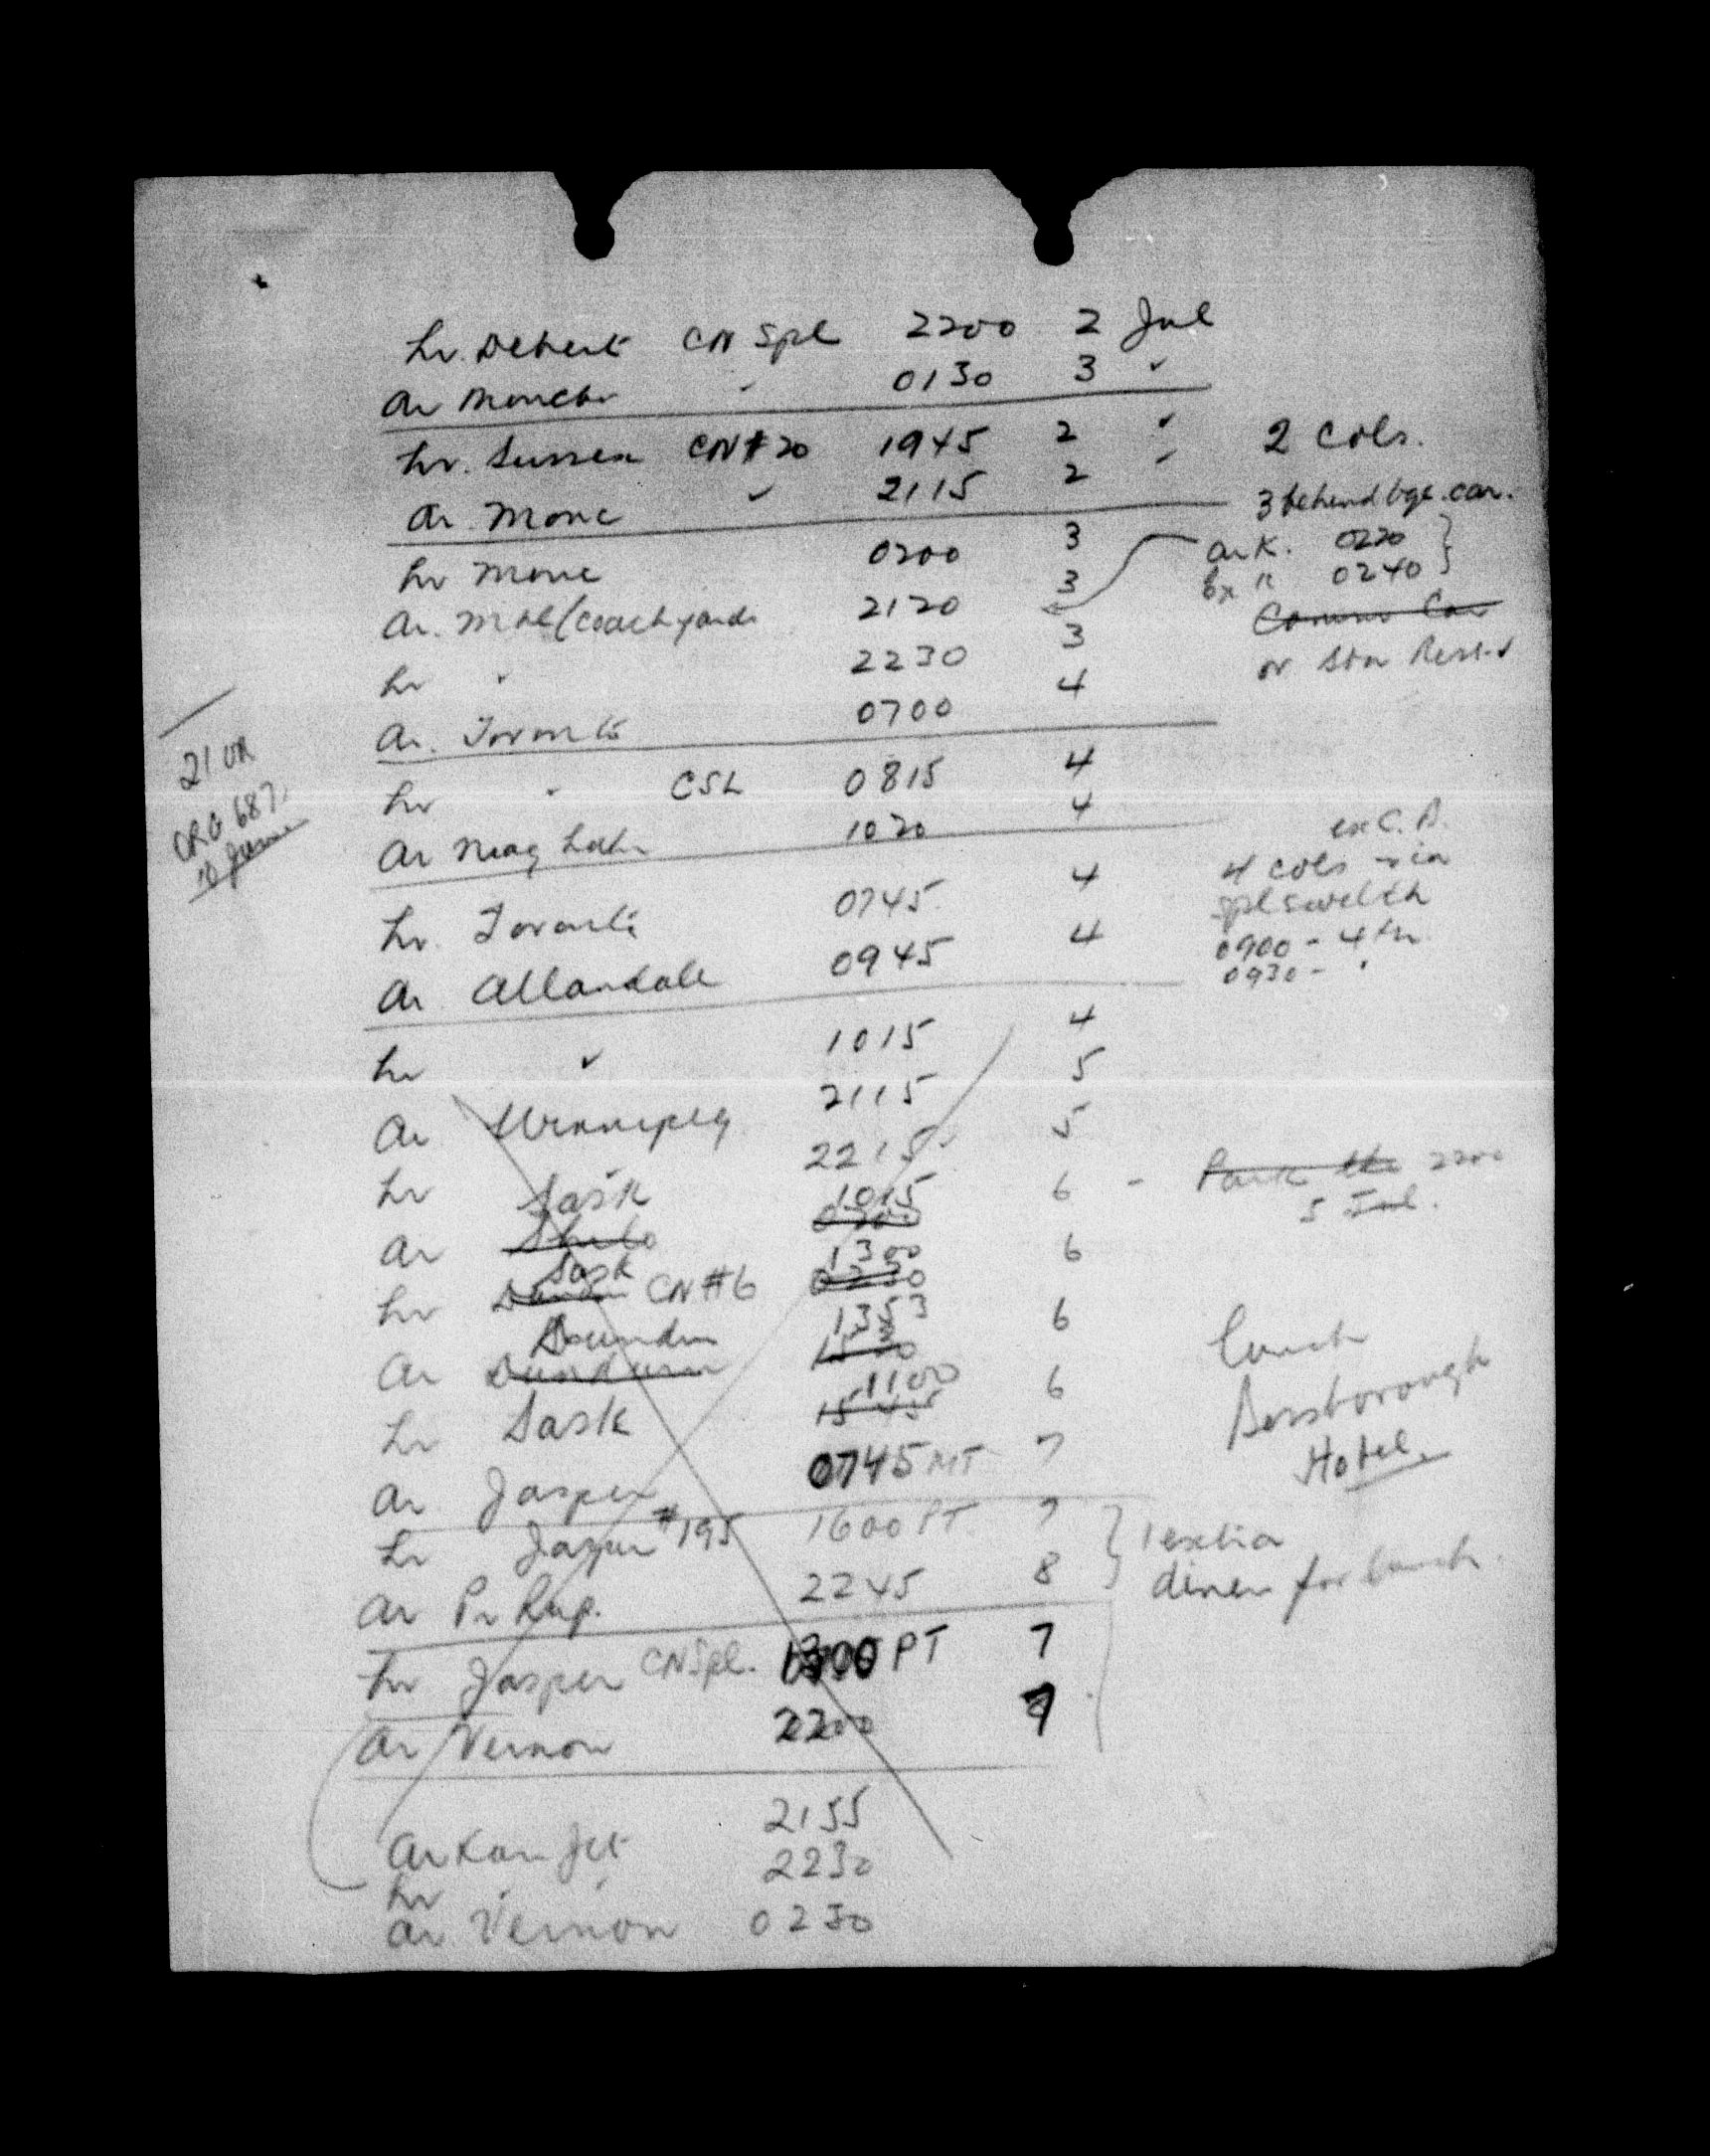 Lv. Debert CN Spl 2200 2 Jul
Ar Moncton " 0130 3 "
Lv. Sussex CN#20 1945 2 " 2 Cols.
Ar. Monc " 2115 2 "
3 behind bge. car.
Lv Monc 0200 3
Ar K. 0220
Ar. Mtl (coach yards 2120 3
Ex " 0240
Comm Car
Lv " 2230 3
or Stn Rest
Ar. Toronto 0700 4
21 VR
CRO 687
10 June
Lv " CSL 0815 4
Ar Niag Lake 1020 4
Lv. Toronto 0745 4
ex C.B.
4 cols via
Ar Allandale 0945 4
0900 - 4th
0930 - "
Lv " 1015 4
Ar Winnipeg 2115 5
Lv " 2215 5
Ar Shilo Sask 1015 6 - Park the 2200
5 Jul.
Lv Sask CN#6 1300 6
Ar Dunkurn Dundurn 1353 6
Lunch
Bessborough
Hotel.
Lv Sask 1545 1100 6
Ar Jasper 0745 MT 7
Lv Jasper #195 1600 PT 7
1 extra
diner for lunch.
Ar Pr Rup. 2245 8
Lv Jasper CN Spl. 1300 PT 7
Ar Vernon 2200 7
Ar Kam Jct 2155
Lv " " 2230
Ar Vernon 0230